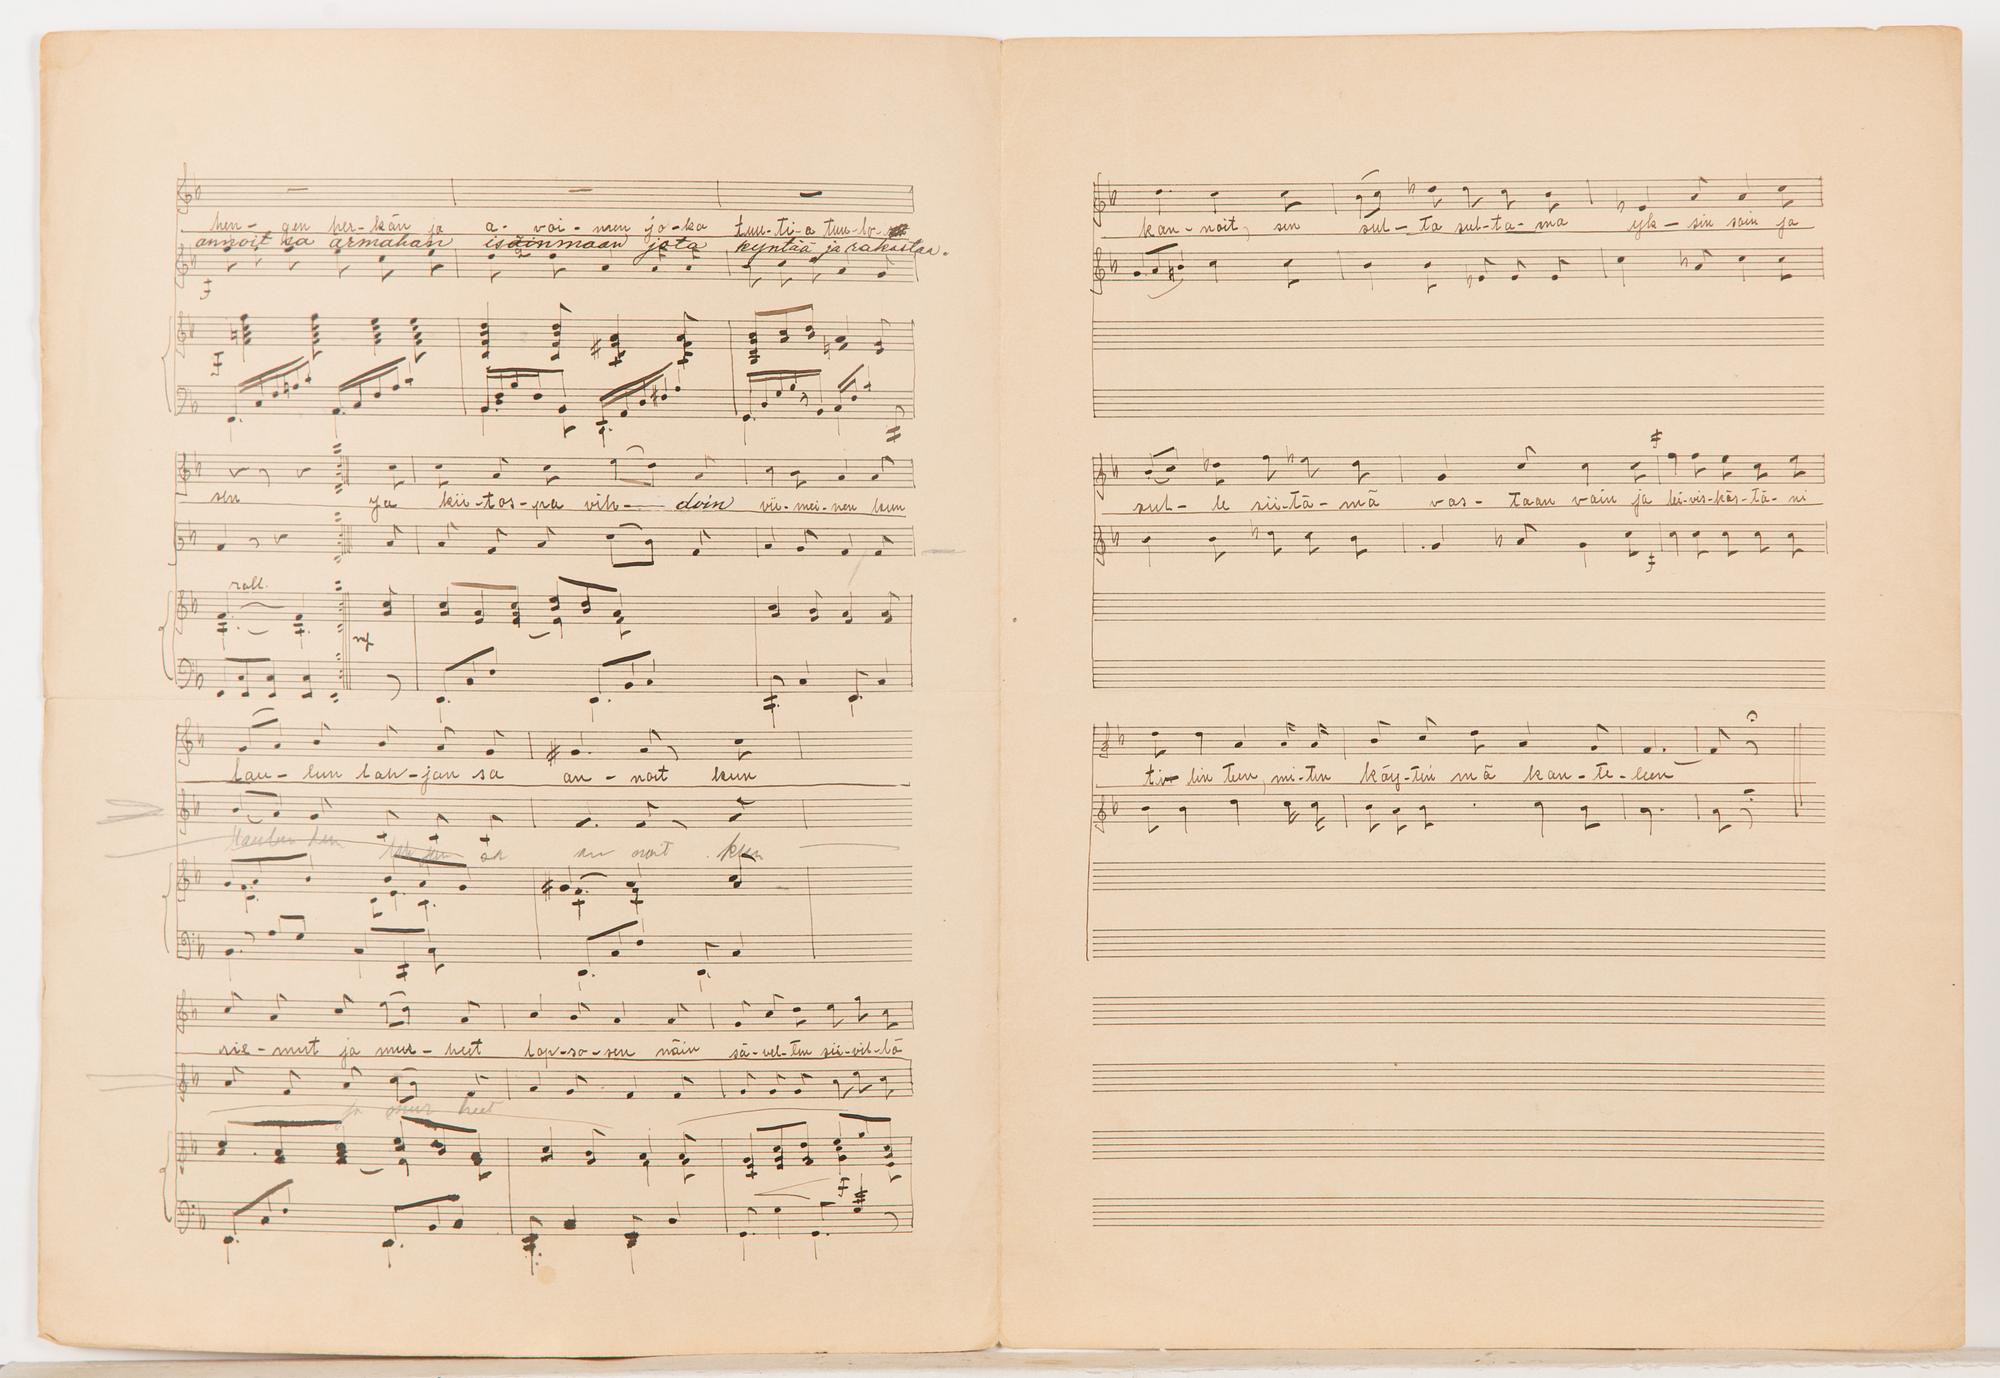 hen - gen her - kän ja a - voi - nen jo - ka tuu - ti - a tuu - lo -
annoit sa armahan isäinmaan jota kyntää ja rakastaa.
f
f
sen ja kii - tos - pa vih - doin vii - mei - nen kun
rall.
mf
lau - lun lah - jan sa an - noit kun
laulun
sa an noit kun
rie - mut ja mur - heet lap - so - sen näin sä - vel - ten sii - vil - lä
ja mur heet
f
kan - noit, sen sul - ta sul - ta - ma yk - sin sain ja
sul - le sii - tä - mä vas - taan vain ja lei - vis - käs - tä - ni
f
ti - lin teen, mi - ten käy - tin mä kan - te - leen